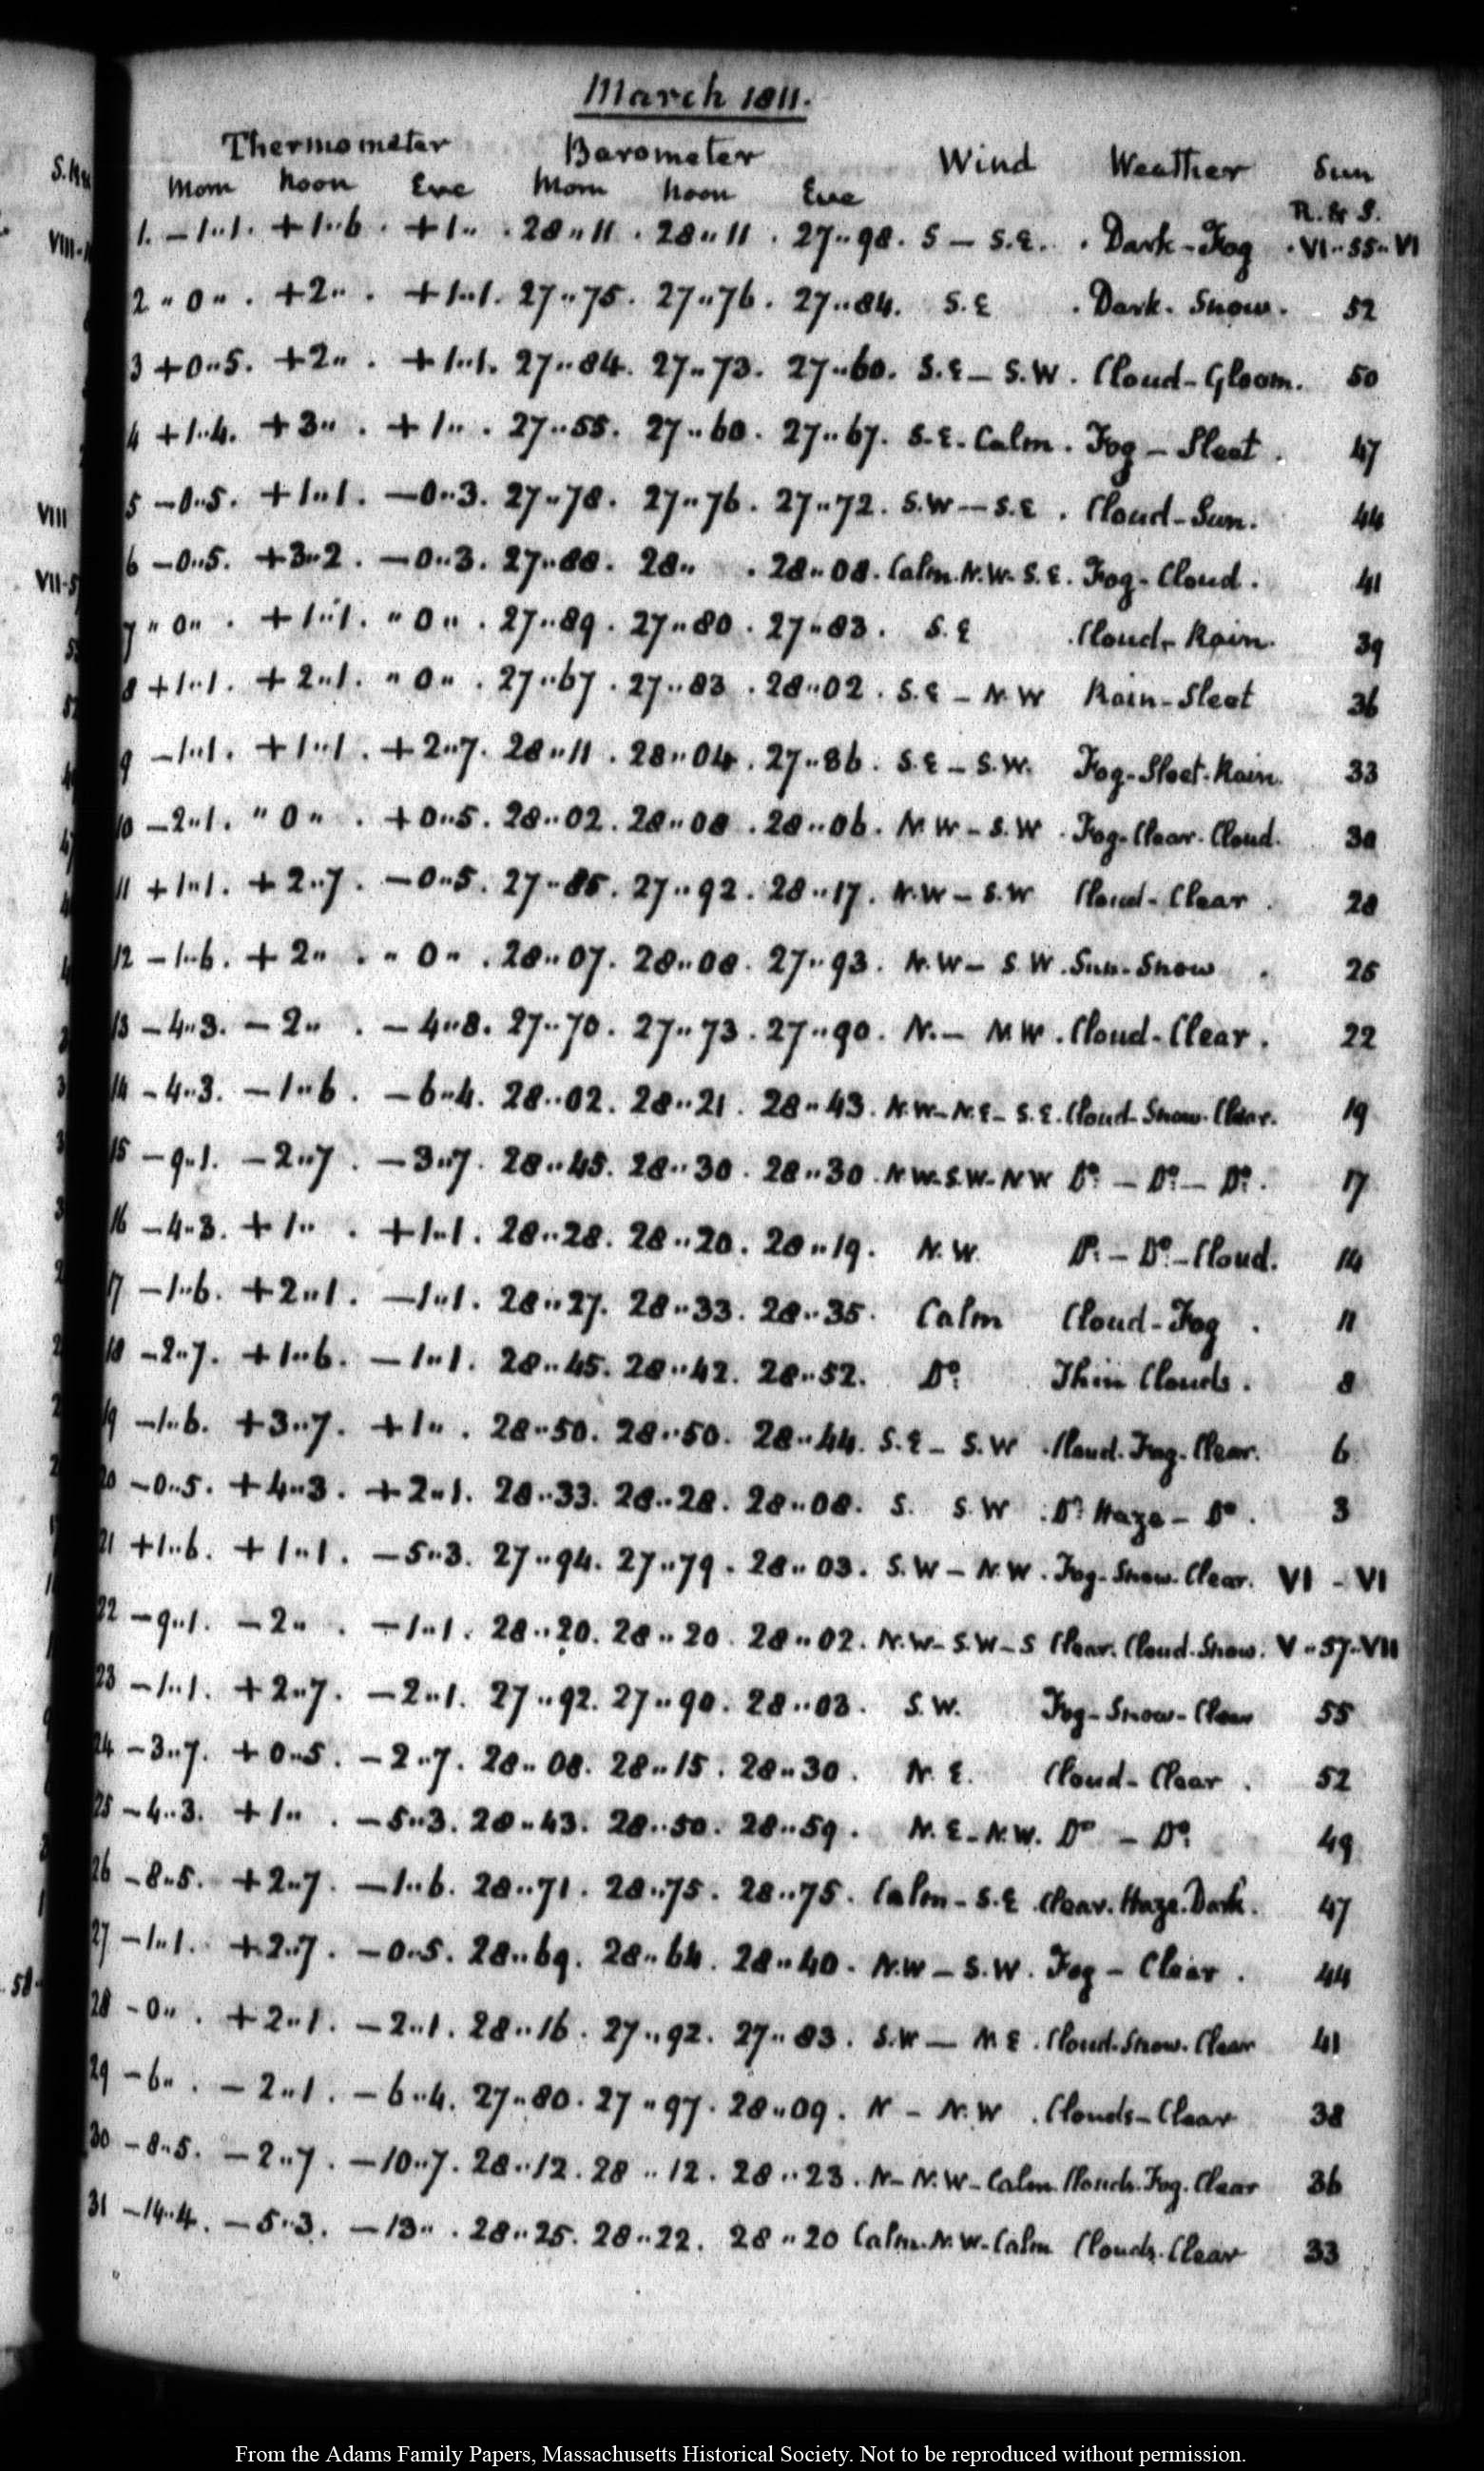 March 1811.
Thermometer Barometer Wind Weather Sun
Morn Noon Eve Morn Noon Eve R. & S.
1. -1..1. +1..6. +1.. . 28..11. 28..11. 27..98. S - S.E. . Dark-Fog . VI..55..VI
2 " 0 " . +2.. . +1..1. 27..75. 27..76. 27..84. S.E . Dark. Snow. 52
3 +0..5. +2.. . +1..1. 27..84. 27..73. 27..60. S.E - S.W. Cloud-Gloom. 50
4 +1..4. +3.. . +1.. . 27..55. 27..60. 27..67. S.E. Calm. Fog - Sleet. 47
5 -0..5. +1..1. -0..3. 27..78. 27..76. 27..72. S.W -- S.E. Cloud-Sun. 44
6 -0..5. +3..2. -0..3. 27..88. 28.. . 28..08. Calm. N.W. S.E. Fog-Cloud. 41
7 " 0 " . +1..1. " 0 " . 27..89. 27..80. 27..83. S.E . Cloud-Rain. 39
8 +1..1. +2..1. " 0 " . 27..67. 27..83. 28..02. S.E - N.W Rain-Sleet 36
9 -1..1. +1..1. +2..7. 28..11. 28..04. 27..86. S.E - S.W. Fog-Sleet-Rain. 33
10 -2..1. " 0 " . +0..5. 28..02. 28..08. 28..06. N W - S.W. Fog-Clear-Cloud. 30
11 +1..1. +2..7. -0..5. 27..85. 27..92. 28..17. N.W - S.W Cloud-Clear. 28
12 -1..6. +2.. . " 0 " . 28..07. 28..08. 27..93. N.W - S.W. Sun-Snow . 25
13 -4..3. -2.. . -4..8. 27..70. 27..73. 27..90. N. - N W. Cloud-Clear. 22
14 -4..3. -1..6. -6..4. 28..02. 28..21. 28..43. N.W-N.E-S.E. Cloud-Snow-Clear. 19
15 -9..1. -2..7. -3..7. 28..45. 28..30. 28..30. N W-S.W-N W Do. - Do. - Do. 17
16 -4..3. +1.. . +1..1. 28..28. 28..20. 28..19. N. W. Do. - Do. - Cloud. 14
17 -1..6. +2..1. -1..1. 28..27. 28..33. 28..35. Calm Cloud-Fog . 11
18 -2..7. +1..6. -1..1. 28..45. 28..42. 28..52. Do. Thin Clouds. 8
19 -1..6. +3..7. +1.. . 28..50. 28..50. 28..44. S.E - S.W . Cloud. Fog-Clear. 6
20 -0..5. +4..3. +2..1. 28..33. 28..28. 28..08. S. S.W . Do. Haze - Do. 3
21 +1..6. +1..1. -5..3. 27..94. 27..79. 28..03. S.W - N.W. Fog-Snow-Clear. VI - VI
22 -9..1. -2.. . -1..1. 28..20. 28..20. 28..02. N.W-S.W-S Clear. Cloud. Snow. V..57..VII
23 -1..1. +2..7. -2..1. 27..92. 27..90. 28..03. S.W. Fog-Snow-Clear 55
24 -3..7. +0..5. -2..7. 28..08. 28..15. 28..30. N. E. Cloud-Clear . 52
25 -4..3. +1.. . -5..3. 28..43. 28..50. 28..59. N. E.-N.W. Do - Do. 49
26 -8..5. +2..7. -1..6. 28..71. 28..75. 28..75. Calm-S.E. Clear. Haze. Dark. 47
27 -1..1. +2..7. -0..5. 28..69. 28..64. 28..40. N.W - S.W. Fog - Clear. 44
28 -0.. . +2..1. -2..1. 28..16. 27..92. 27..83. S.W - N E. Cloud-Snow. Clear 41
29 -6.. . -2..1. -6..4. 27..80. 27..97. 28..09. N - N.W . Clouds-Clear 38
30 -8..5. -2..7. -10..7. 28..12. 28..12. 28..23. N-N.W-Calm. Clouds. Fog. Clear 36
31 -14..4. -5..3. -13.. . 28..25. 28..22. 28..20 Calm. N.W-Calm Clouds. Clear 33
From the Adams Family Papers, Massachusetts Historical Society. Not to be reproduced without permission.